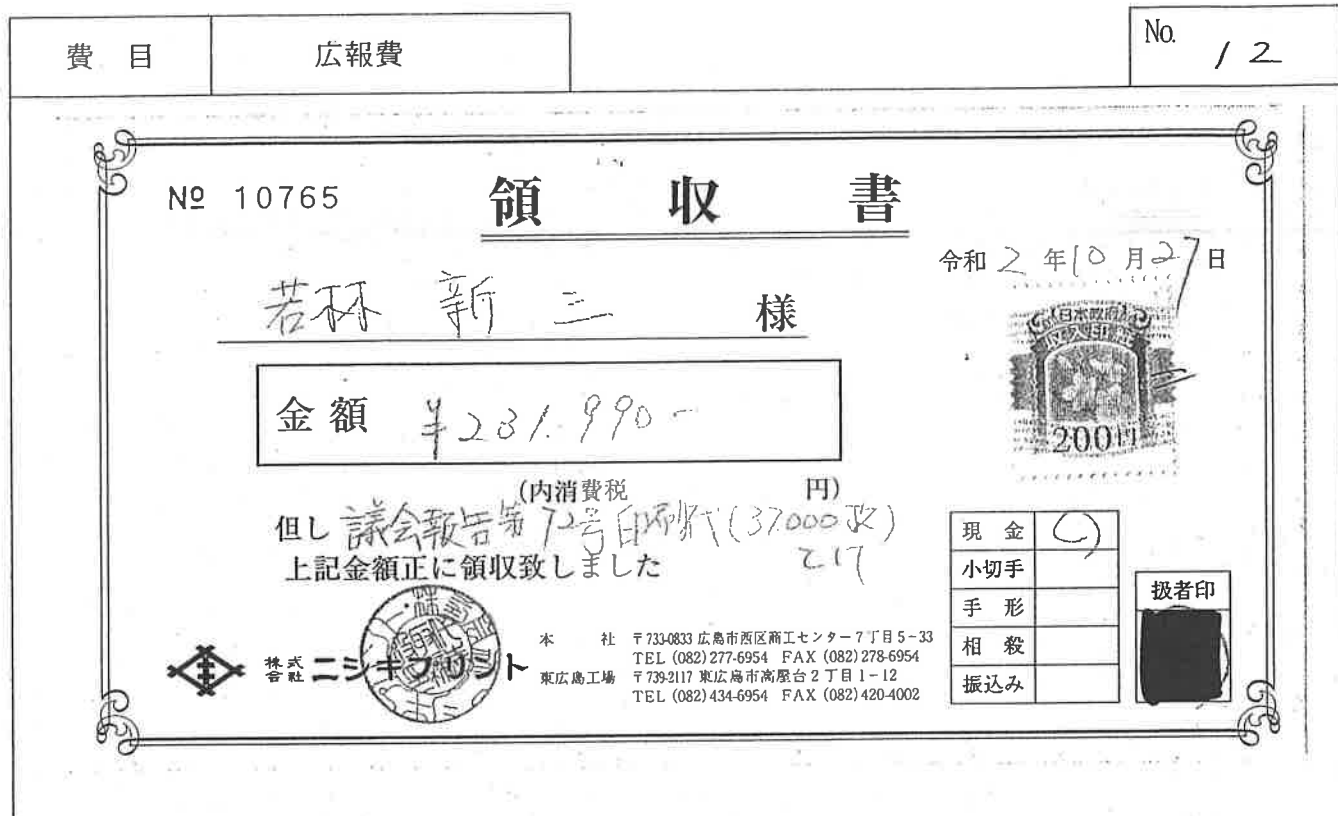 費 目 広報費 No. 12
No 10765 領収書
令和2年10月27日
若林 新三 様
日本政府
収入印紙
200円
金額 ¥231.990-
(内消費税 円)
但し 議会報告第72号印刷代(37.000枚)
上記金額正に領収致しました として
現金
小切手
手形
相殺
振込み
扱者印
株式会社 ニシキプリント
本社 〒733-0833 広島市西区商工センター7丁目5-33
TEL (082)277-6954 FAX (082)278-6954
東広島工場 〒739-2117 東広島市高屋台2丁目1-12
TEL (082)434-6954 FAX (082)420-4002